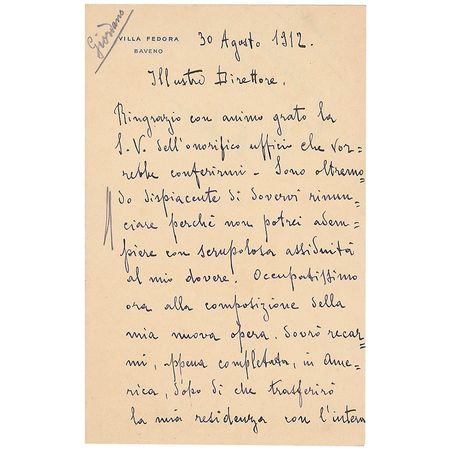 Giordano
VILLA FEDORA
BAVENO
30 Agosto 1912.
Illustre Direttore.
Ringrazio con animo grato la
S.V. dell'onorifico ufficio che vor=
rebbe conferirmi - Sono oltremo=
do dispiacente di dovervi rinun=
ciare perchè non potrei adem=
piere con scrupolosa assiduità
al mio dovere. Occupatissimo
ora alla composizione della
mia nuova opera. Dovrò recar=
mi, appena completata, in Ame=
rica, dopo di che trasferirò
la mia residenza con l'intera